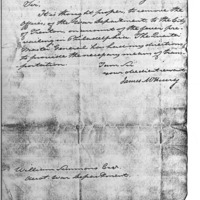 Sir.
It is thought proper to remove the
Offices of the War department to the City
of Trenton, on account of the fever pre-
vailing in Philadelphia. The Quarter
Master General has having directions
to provide the necessary means of trans-
portation.
I am Sir
your obedient servant
James McHenry
William Simmons Esqr.
Acct. War department.